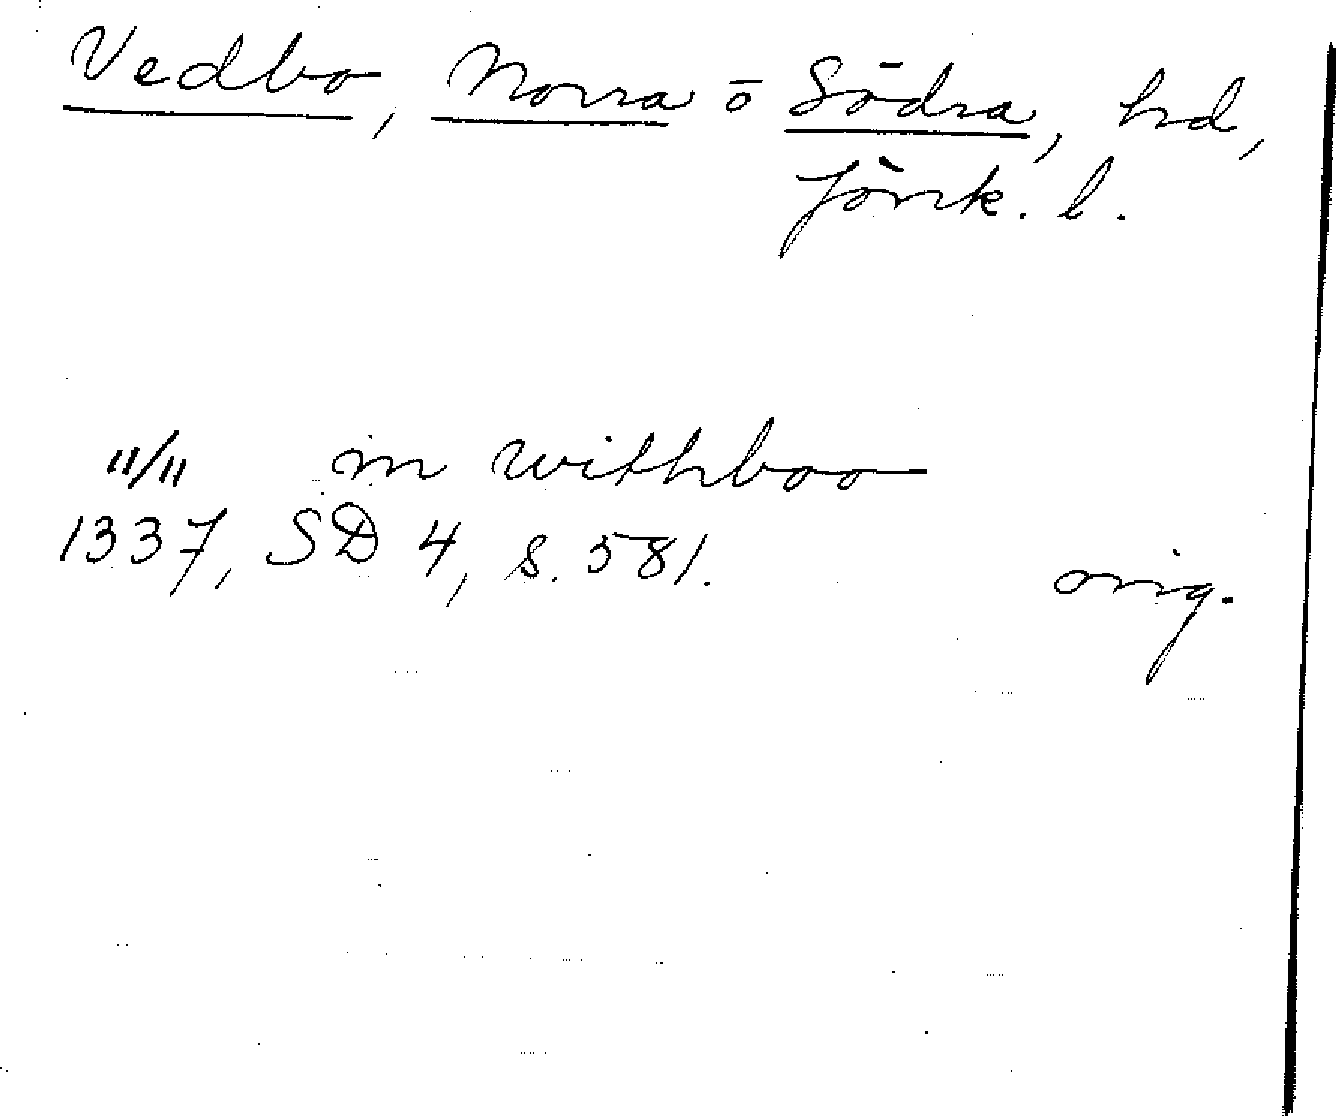 Vedbo, Norra o Södra, hd,
Jönk. l.
11/11 in withboo
1337, SD 4, s. 581. orig.